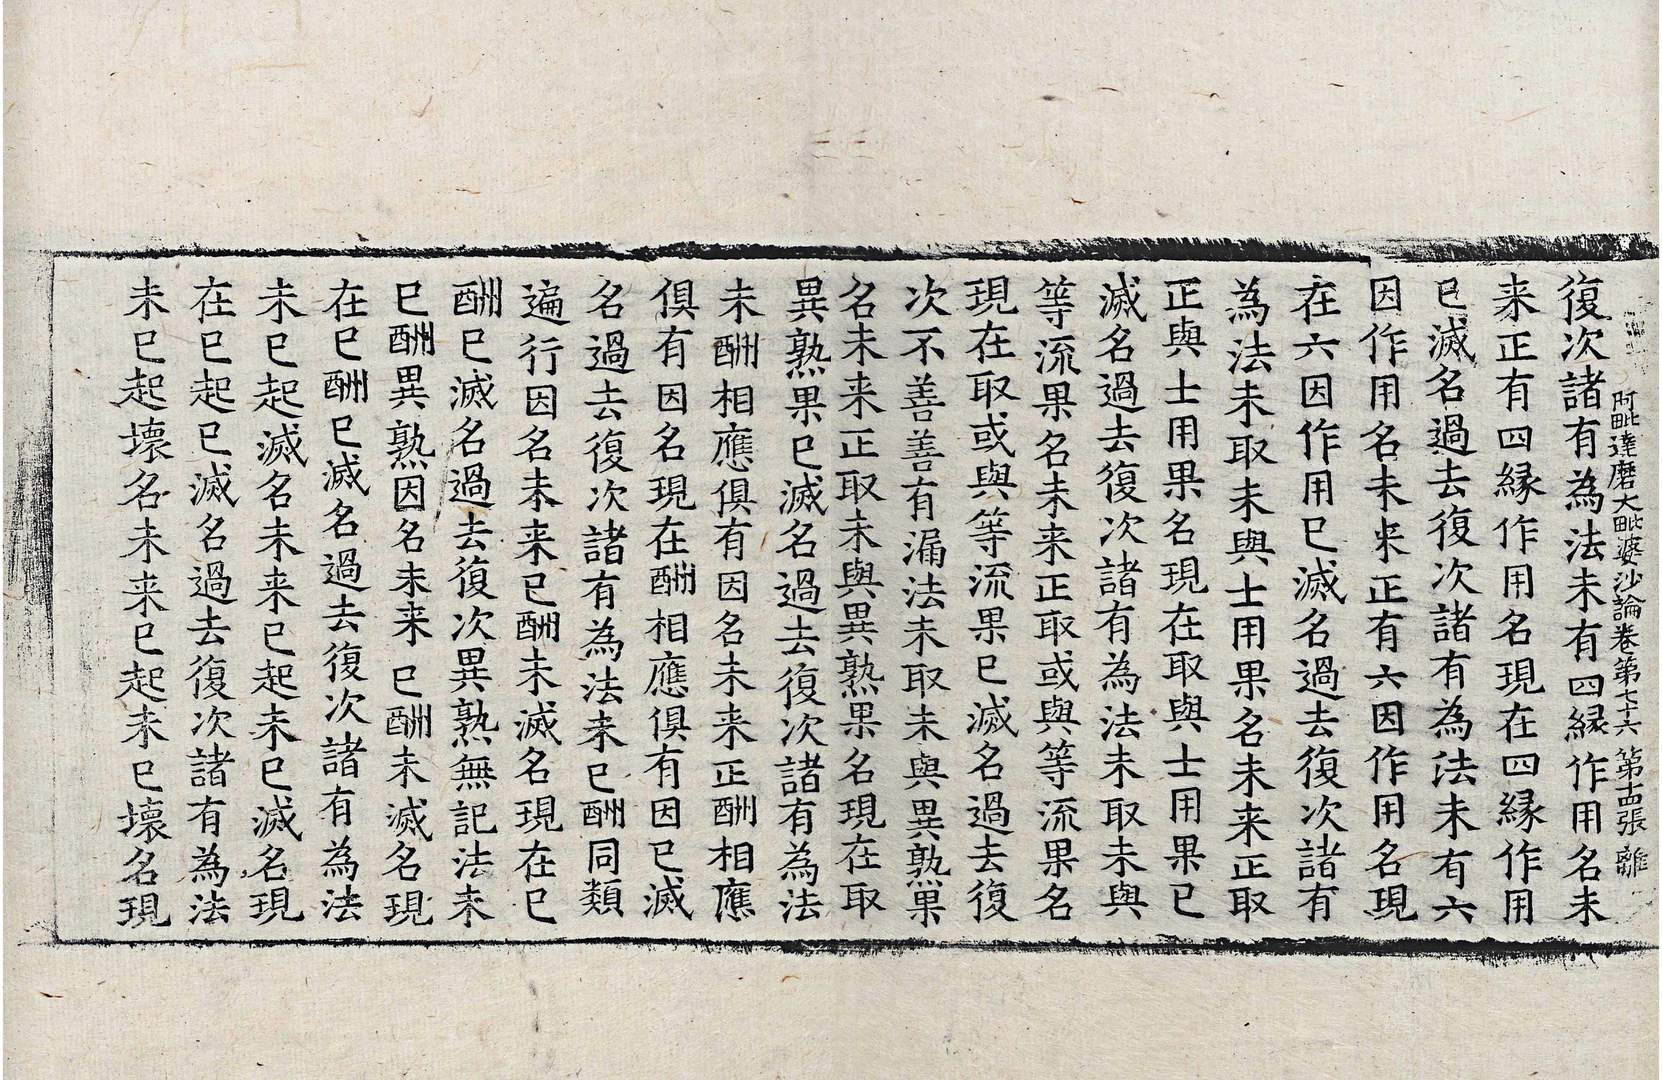 阿毗達磨大毗婆沙論卷第七十六 第十四張 離
復次諸有為法未有四縁作用名未
来正有四縁作用名現在四縁作用
已滅名過去復次諸有為法未有六
因作用名未来正有六因作用名現
在六因作用已滅名過去復次諸有
為法未取未與士用果名未来正取
正與士用果名現在取與士用果已
滅名過去復次諸有為法未取未與
等流果名未来正取或與等流果名
現在取或與等流果已滅名過去復
次不善善有漏法未取未與異熟果
名未来正取未與異熟果名現在取
異熟果已滅名過去復次諸有為法
未酬相應俱有因名未来正酬相應
俱有因名現在酬相應俱有因已滅
名過去復次諸有為法未已酬同類
遍行因名未来已酬未滅名現在已
酬已滅名過去復次異熟無記法未
已酬異熟因名未来已酬未滅名現
在已酬已滅名過去復次諸有為法
未已起滅名未来已起未已滅名現
在已起已滅名過去復次諸有為法
未已起壞名未来已起未已壞名現